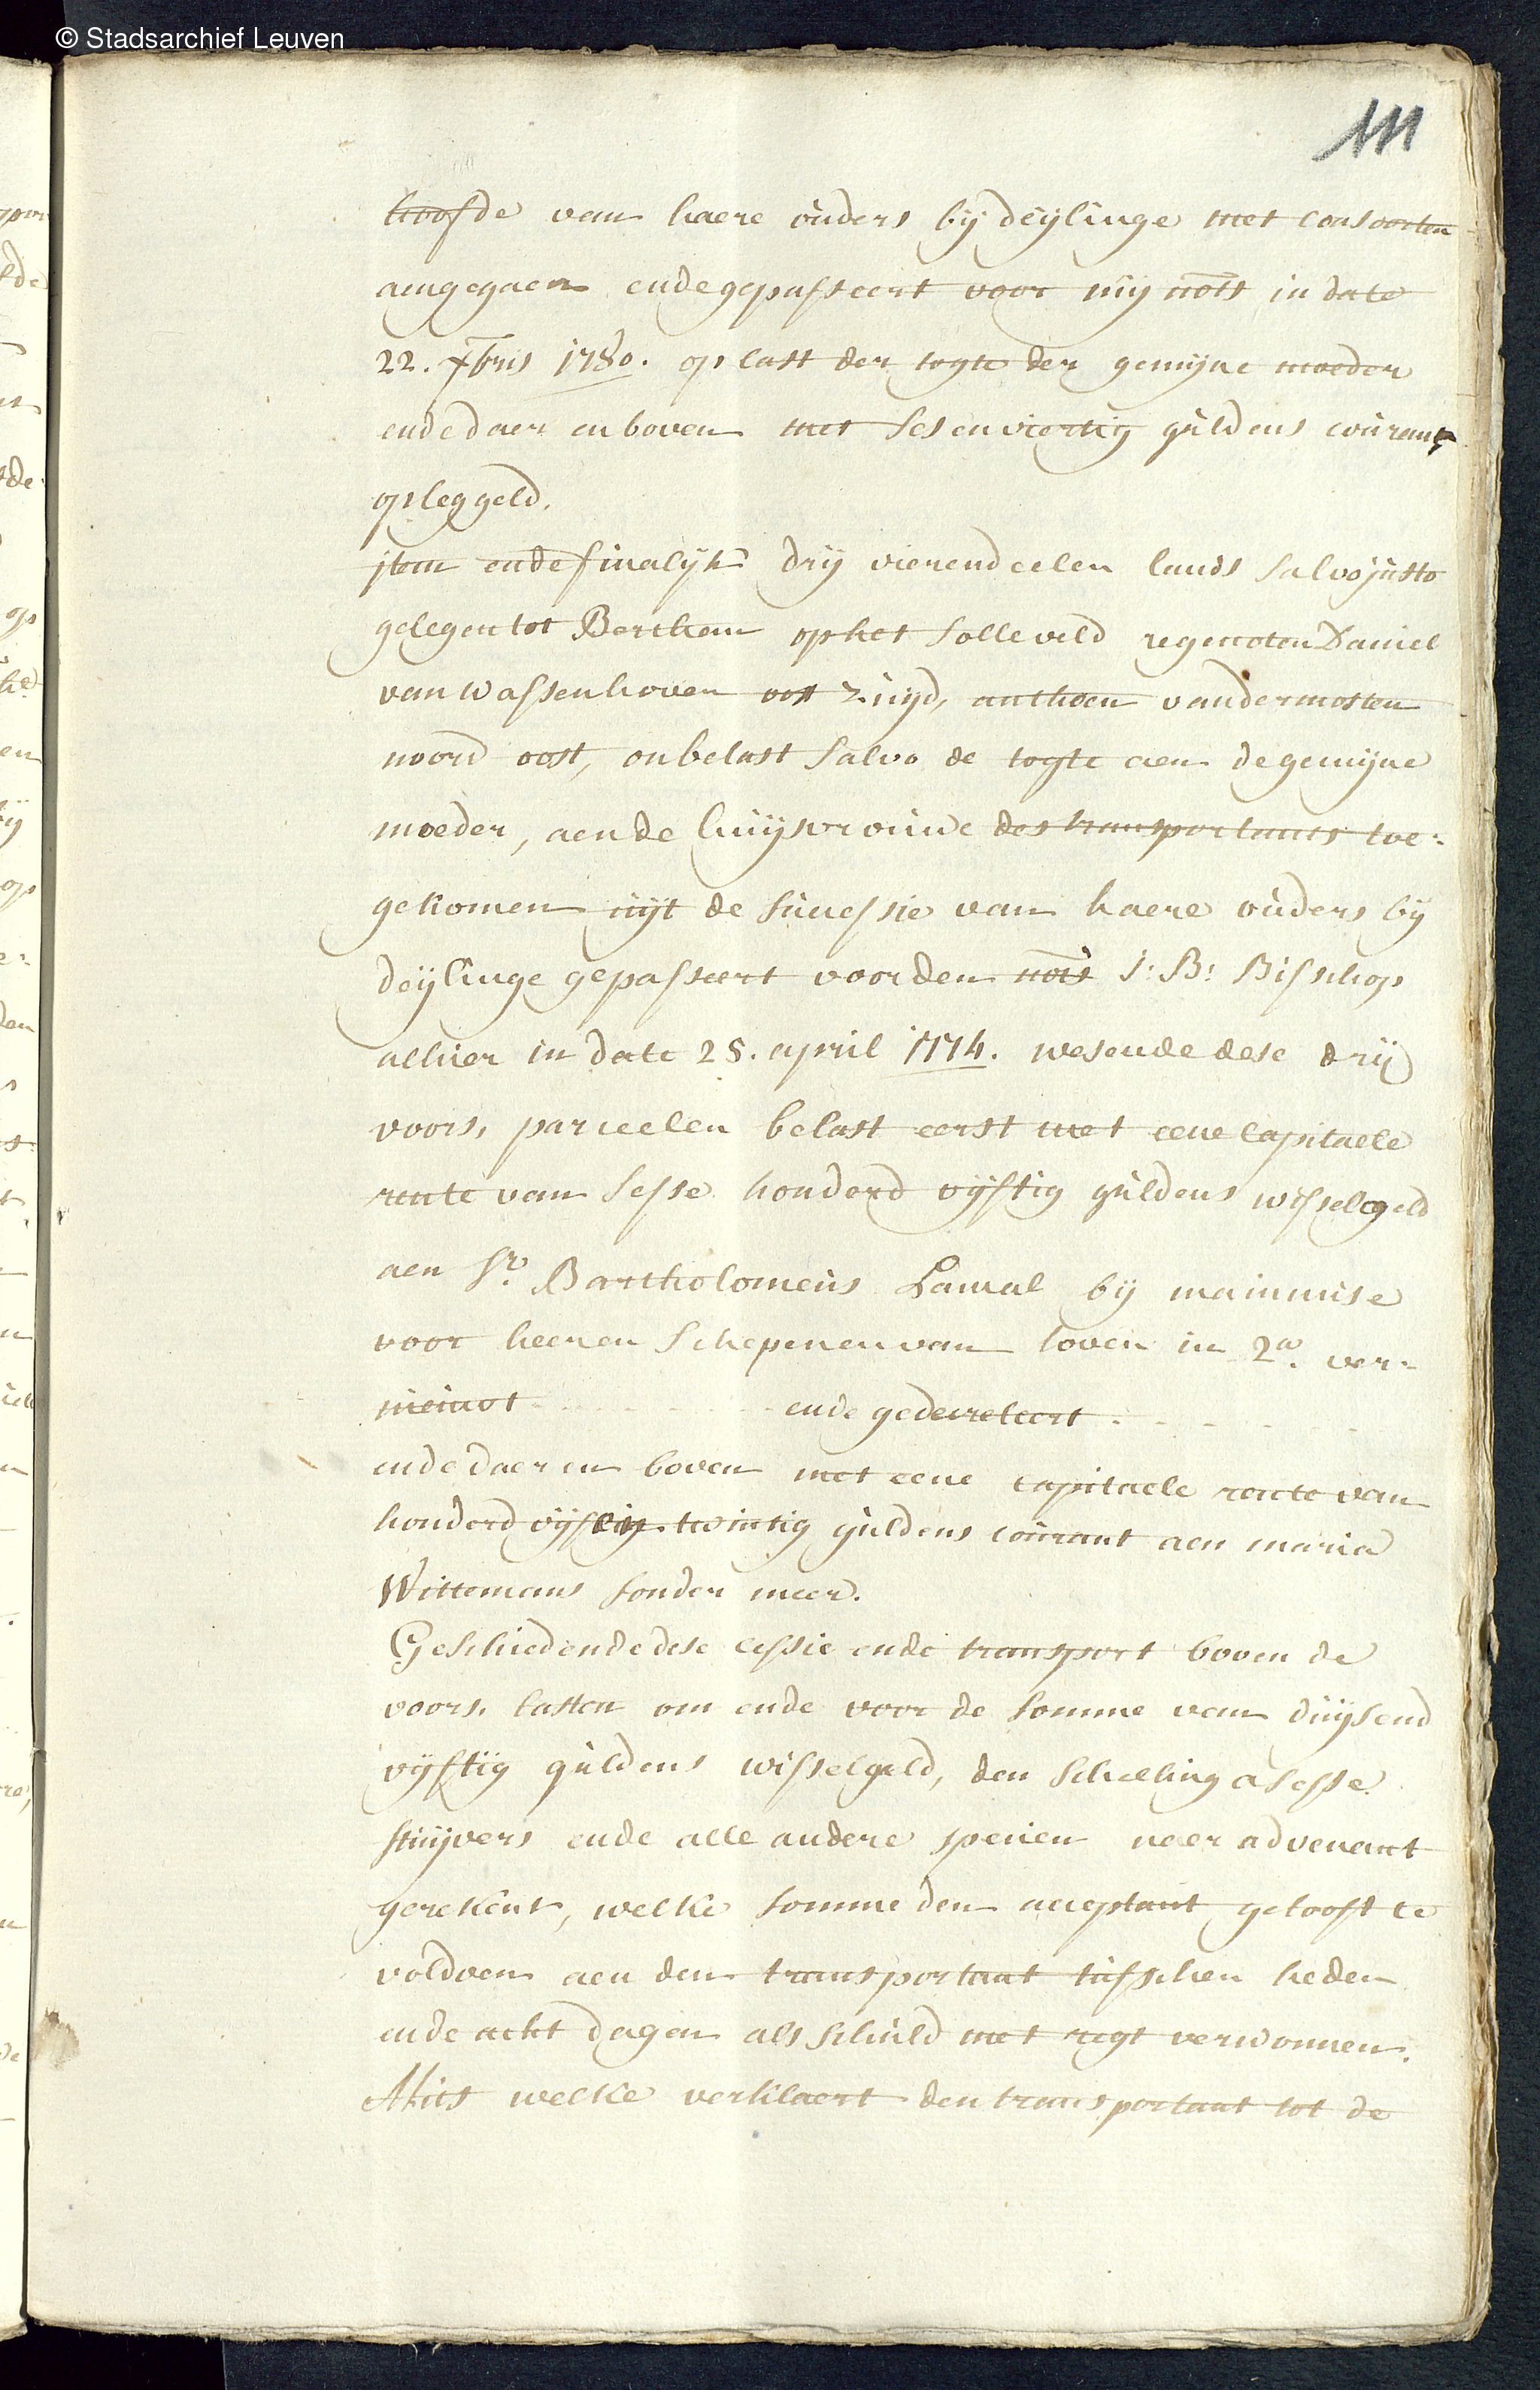 © Stadsarchief Leuven
111
hoofde van haere ouders bij deijlinge met consoorten
aengegaen ende gepasseert voor mij nots in date
22. Xbris 1780. op last der togte der gemijne moeder
ende daer en boven met ses en viertig guldens courant
opleggeld.
jtem ende finalijk drij vierendeelen lands salvo justo
gelegen tot Berthem op het solleveld regenoten Daniel
van Wassenhoven oost zuijd, anthoen vandermosten
noord oost, onbelast salvo de togte aen de gemijne
moeder, aen de huijsvrouwe des transportants toe:
gekomen uijt de successie van haere ouders bij
deijlinge gepasseert voor den nots J: B: Bisschop
alhier in date 25. april 1774. wesende dese drij
voors, parceelen belast eerst met eene capitaele
rente van sesse honderd vijftig guldens wisselgeld
aen Sr. Bartholomeus Lawal bij mainmise
voor heeren Schepenen van loven in 2a. ver-
nieuwt - - - - - - - - ende gedecreteert - - - - -
ende daer en boven met eene capitaele rente van
honderd vijf en twintig guldens courant aen maria
Wittemans sonder meer.
Geschiedende dese cessie ende transport boven de
voors, lasten om ende voor de somme van duijsend
vijftig guldens wisselgeld, den schelling a sesse
stuijvers ende alle andere specien naer advenant
gerekent, welke somme den acceptant gelooft te
voldoen aen den transportant tusschen heden
ende acht dagen als schuld met regt verwonnen.
Mits welke verklaert den transportant tot de